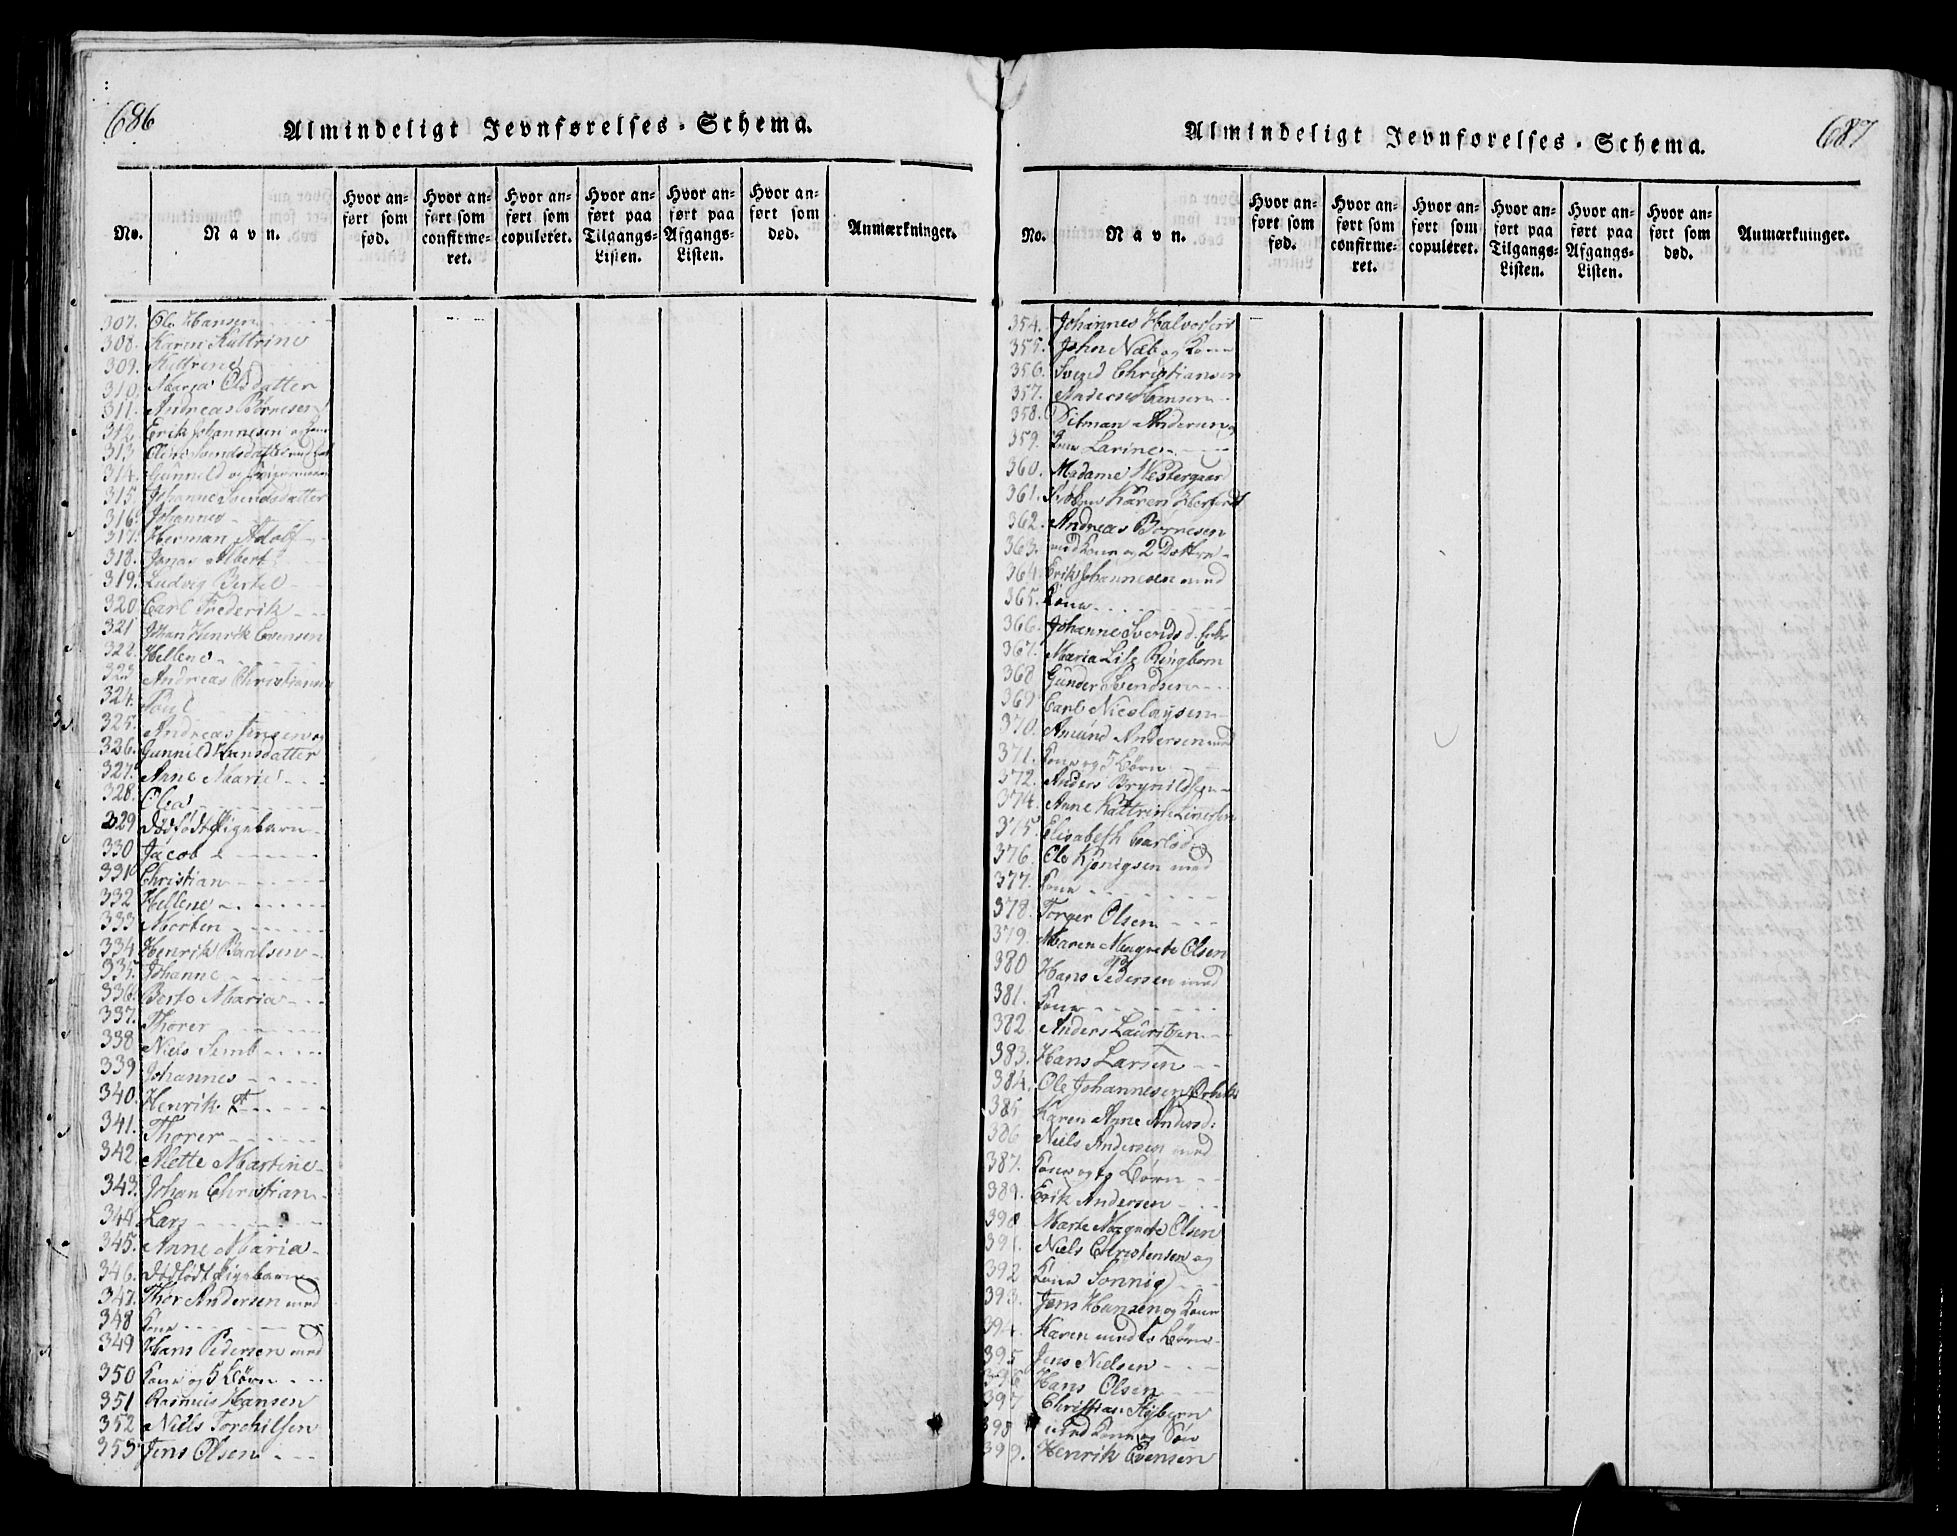 686
Almindeligt Jevnførelses-Schema.
No.
Navn.
Hvor anført som fød.
Hvor anført som confirmeret.
Hvor anført som copuleret.
Hvor anført paa Tilgangs-Listen.
Hvor anført paa Afgangs-Listen.
Hvor anført som død.
Anmærkninger.
307. Ole Hansen
308. Karen Kattrine
309. Kattrine
310. Maria Olsdatter
311. Andreas Børresen
312 Erik Johannesen og
313 Svendsdatter med
314. Gunnild og
315. Johanne Svendsdatter
316. Johannes
317. Herman Adolf
318. Jonas Albert
319. Ludvig Bertel
320 Carl Frederik
321 Johan Henrik Evensen
322. Hellene
323 Andreas Christiansen
324. Poul
325. Andreas Jensen og
326. Gunnild Hansdatter
327. Anne Marie
328. Olea
329 Dødfødt Pigebarn
330 Jacob
331 Christian
332 Hellene
333 Morten
334 Henrik Paulsen
335. Johanne
336. Berte Maria
337. Thorer
338 Niels Semb
339 Johannes
340. Henrik
341. Thorer
342. Mette Martine
343. Johan Christian
344. Lars
345. Anne Maria
346. Dødfødt Pigebarn
347. Thor Andersen med
348 Kone
349 Hans Pedersen med
350 Kone og 5 Børn
351 Rasmus Hansen
352 Niels Torchilsen
353 Jens Olsen
687
Almindeligt Jevnførelses-Schema.
No.
Navn.
Hvor anført som fød.
Hvor anført som confirmeret.
Hvor anført som copuleret.
Hvor anført paa Tilgangs-Listen.
Hvor anført paa Afgangs-Listen.
Hvor anført som død.
Anmærkninger.
354. Johannes Halvorsen
355. John Næb og Kone
356. Svend Christiansen
357. Anders Hansen
358. Ditman Andersen og
359. Kone Larine
360. Madame Westergaar
361. Karen
362. Andreas Børresen
363. med Kone og 2 Døttre
364. Erik Johannesen med
365. Kone
366. Johanne Svends d.
367. Maria Lise Ringborn
368 Gunder Svendsen
369 Carl Nicolaysen
370. Amund Andersen med
371. Kone og 5 Børn
372. Anders Brynildsen
374. Anne Kattrine
375. Elisabeth Carlsd.
376. Ole med
377. Kone
378. Torger Olsen
379. Maren Magrete Olsen
380 Hans Pedersen med
381. Kone
382 Anders Lauritzen
383. Hans Larsen
384. Ole Johannesen
385. Karen Anne
386 Niels Andersen med
387. Kone og Børn
389. Erik Andersen
390 Marte Magrete Olsen
391. Niels Christensen og
392 Kone Sonnig
393. Jens Hansen og Kone
394. Karen med Børn
395 Jens Nielsen
396 Hans Olsen
397 Christian
398 med Kone og Søn
399. Henrik Evensen